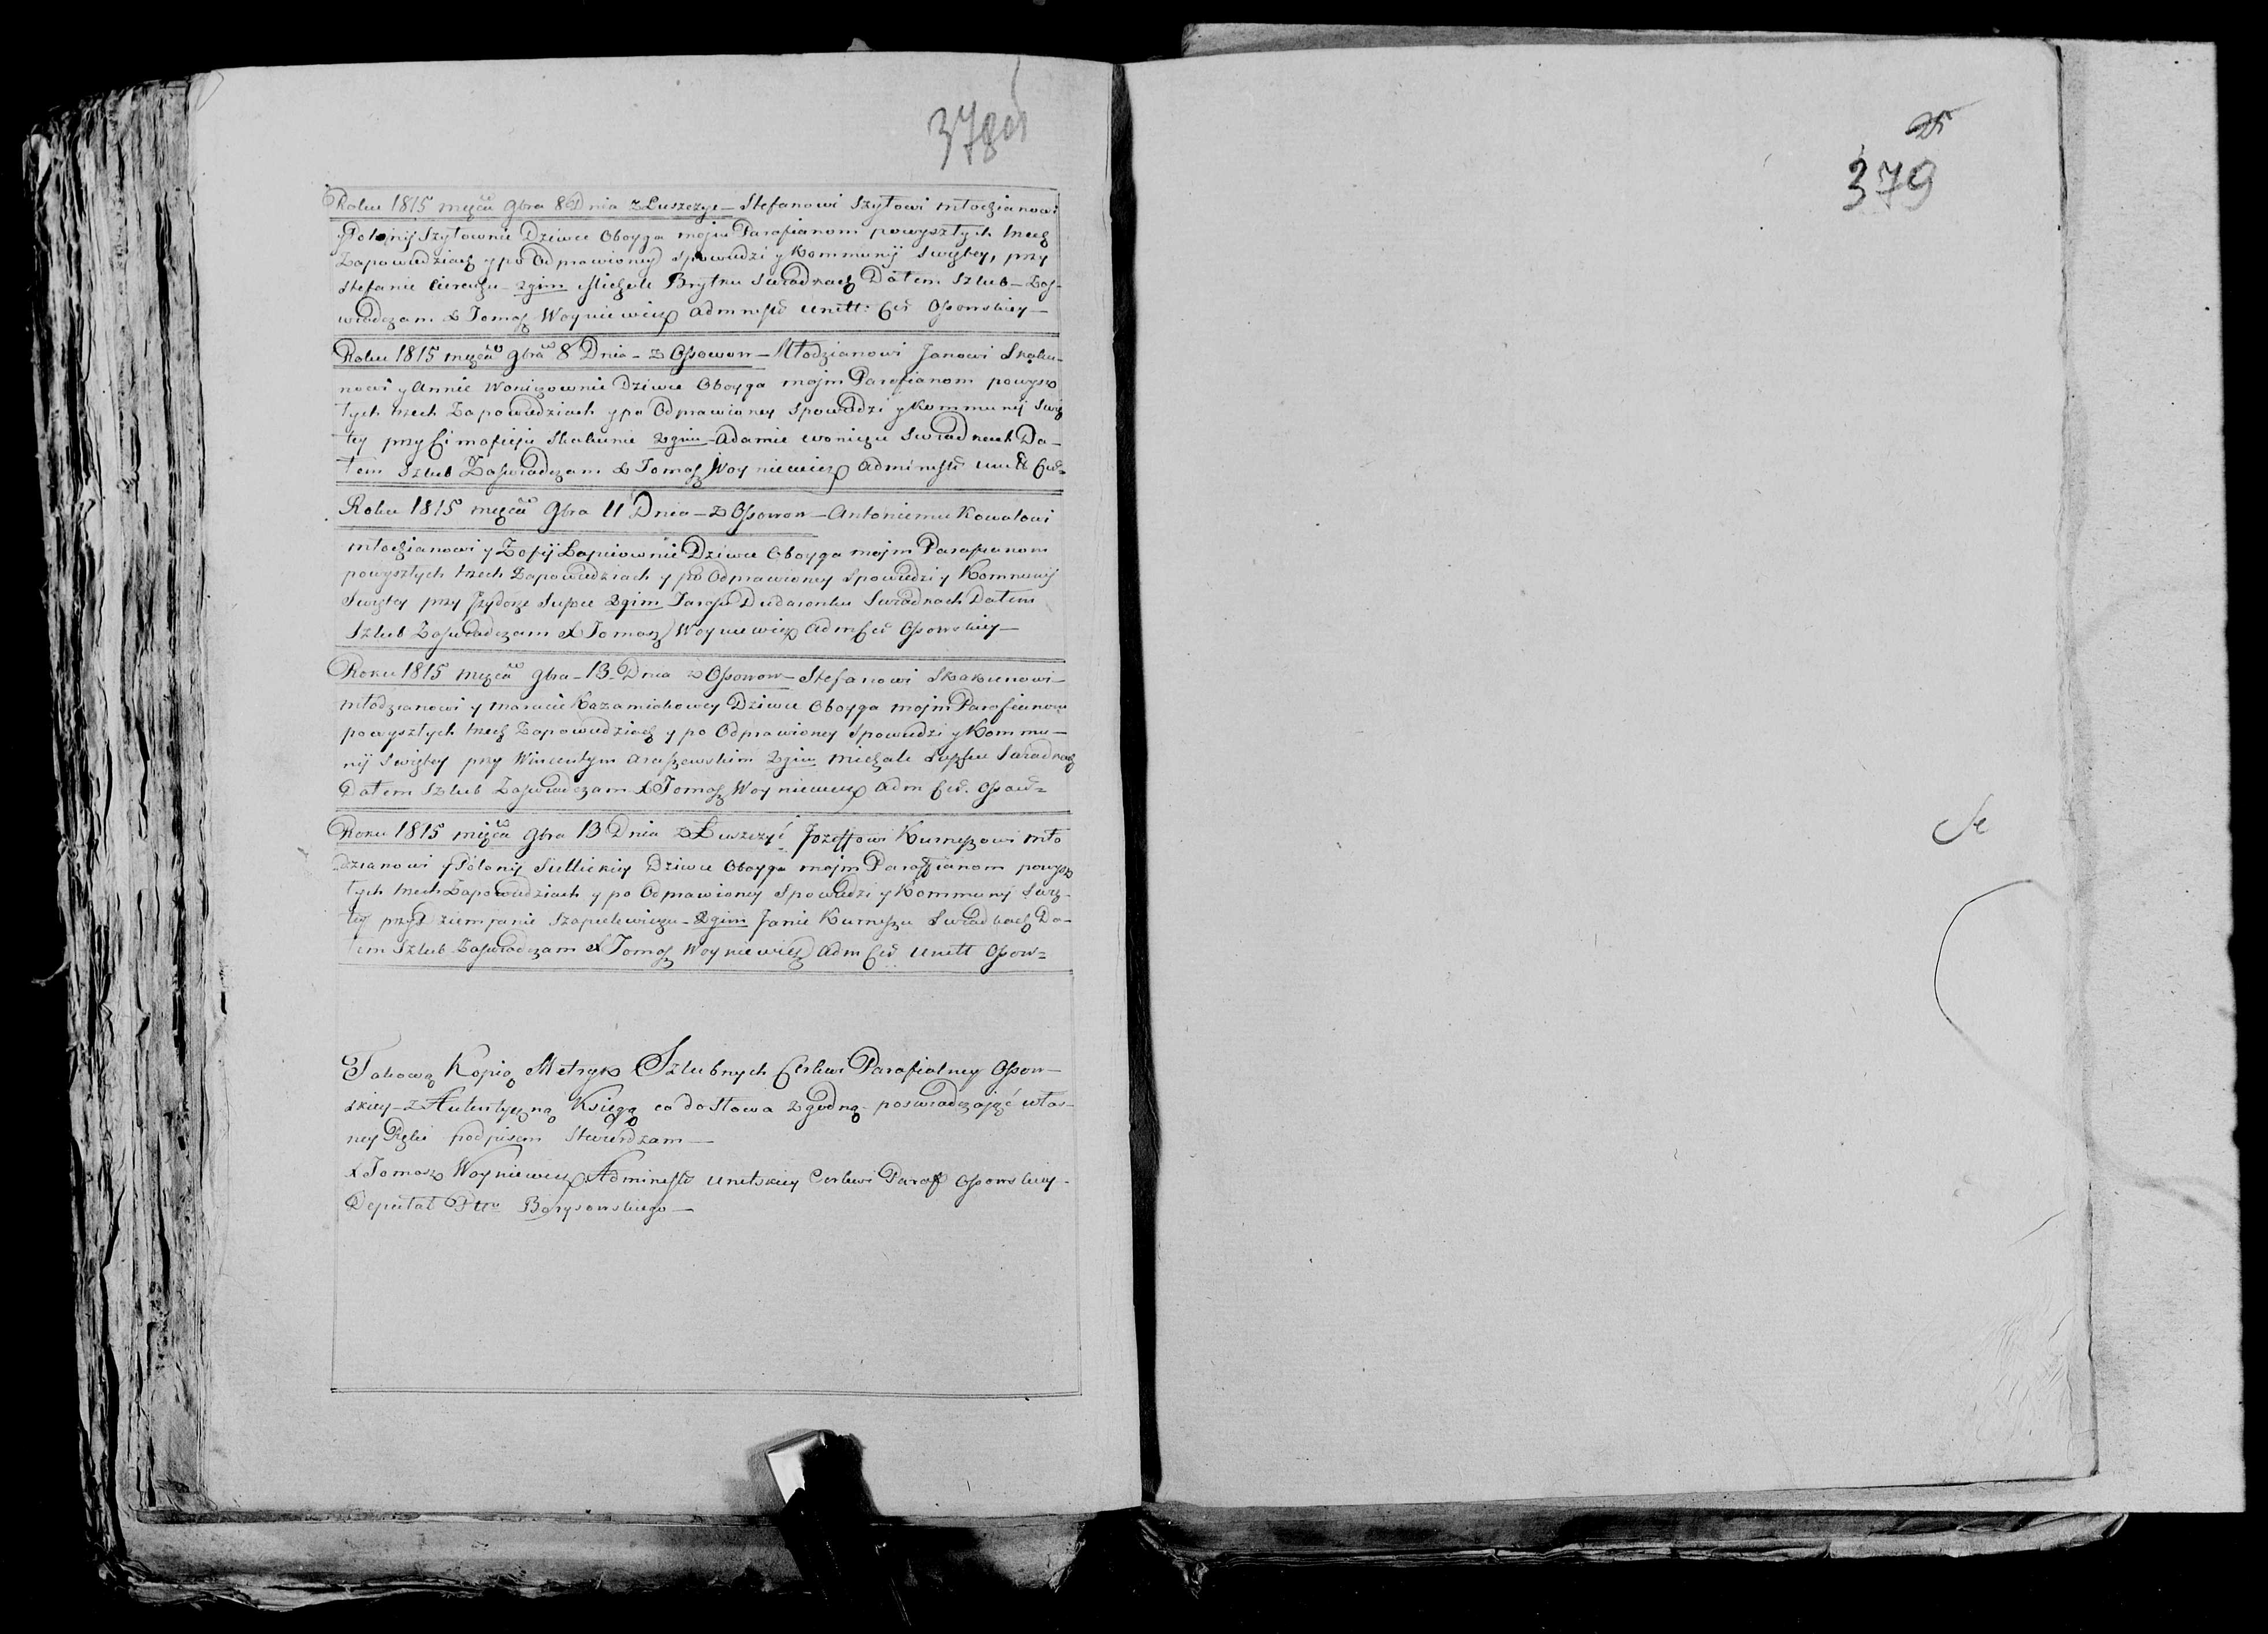 378об
Roku 1815 mięca 9bra 8 Dnia z Łuszczyc – Stefanowi Szyłowi młodzianowi
y Połonij Szyłownie Dziwce Oboyga moim Parafianom powyszłych trzech
Zapowiedziach y po Odprawioney Spowiedzi y Kommunij Swiętey, przy
Stefanie 2gim Michale Brytku Swiadkach Dałem Szlub – Zaś-
wiadczam X Tomasz Woyniewicz Adminstr Unitt: Cer Ossowskiey –
Roku 1815 mięca 9bra 8 Dnia – z Ossowow – Młodzianowi Janowi Skaku-
nowi y Annie Woniczownie Dziwce Oboyga moim Parafianom powysz
łych trzech Zapowiedziach y po Odprawioney Spowiedzi y Kommunij Swię
tey przy Cimafieju Skakunie 2gim – Adamie Woniczu Swiadkach Da-
łem Szlub Zaswiadczam X Tomasz Woyniewicz Administr Unitt Cer=
Roku 1815 mięca 9bra 11 Dnia – z Ossowow – Antoniemu Kowalowi
młodzianowi y Zofij Łapciownie Dziwce Oboyga moim Parafianom
powyszłych trzech Zapowiedziach y po Odprawioney Spowiedzi y Kommunij
Swiętey przy Jzydorze Supce 2gim Tarasu Dudaronku Swiadkach Dałem
Szlub Zaswiadczam X Tomasz Woyniewicz Adm Cer Ossowskiey –
Roku 1815 mięca 9bra – 13 – Dnia z Ossowow – Stefanowi Skakunowi –
młodzianowi y Marucie Kazamiakowey Dziwce Oboyga moim Parafianom
powyszłych trzech Zapowiedziach y po Odprawioney Spowiedzi y Kommu –
nij Swiętey przy Wincentym 2gim Michale Swiadkach
Dałem Szlub Zaswiadczam X Tomasz Woyniewicz Adm Cer. Ossow=
Roku 1815 mięca 9bra 13 Dnia z Łuszczyc Jozeffowi Kurneszowi mło
dzianowi y Połonij Siellickiey Dziwce Oboyga moim Paraffianom powysz
łych trzech Zapowiedziach y po Odprawioney Spowiedzi y Kommunij Swię-
tey przy Dziemjanie Szapielewiczu – 2gim Janie Kurneszu Swiadkach Da-
łem Szlub Zaswiadczam X Tomasz Woyniewicz Adm Cer Unitt Ossow=
Takową Kopią Metryk Szlubnych Cerkwi Parafialney Ossow-
skiey – z Autentyczną Księgą co do słowa zgodną – poswiadczając włas-
ney Ręki podpisem Stwierdzam –
X Tomasz Woyniewicz Administr Unitskiey Cerkwi Paraf Ossowskiey –
Deputat Pttu Borysowskiego –
25
379